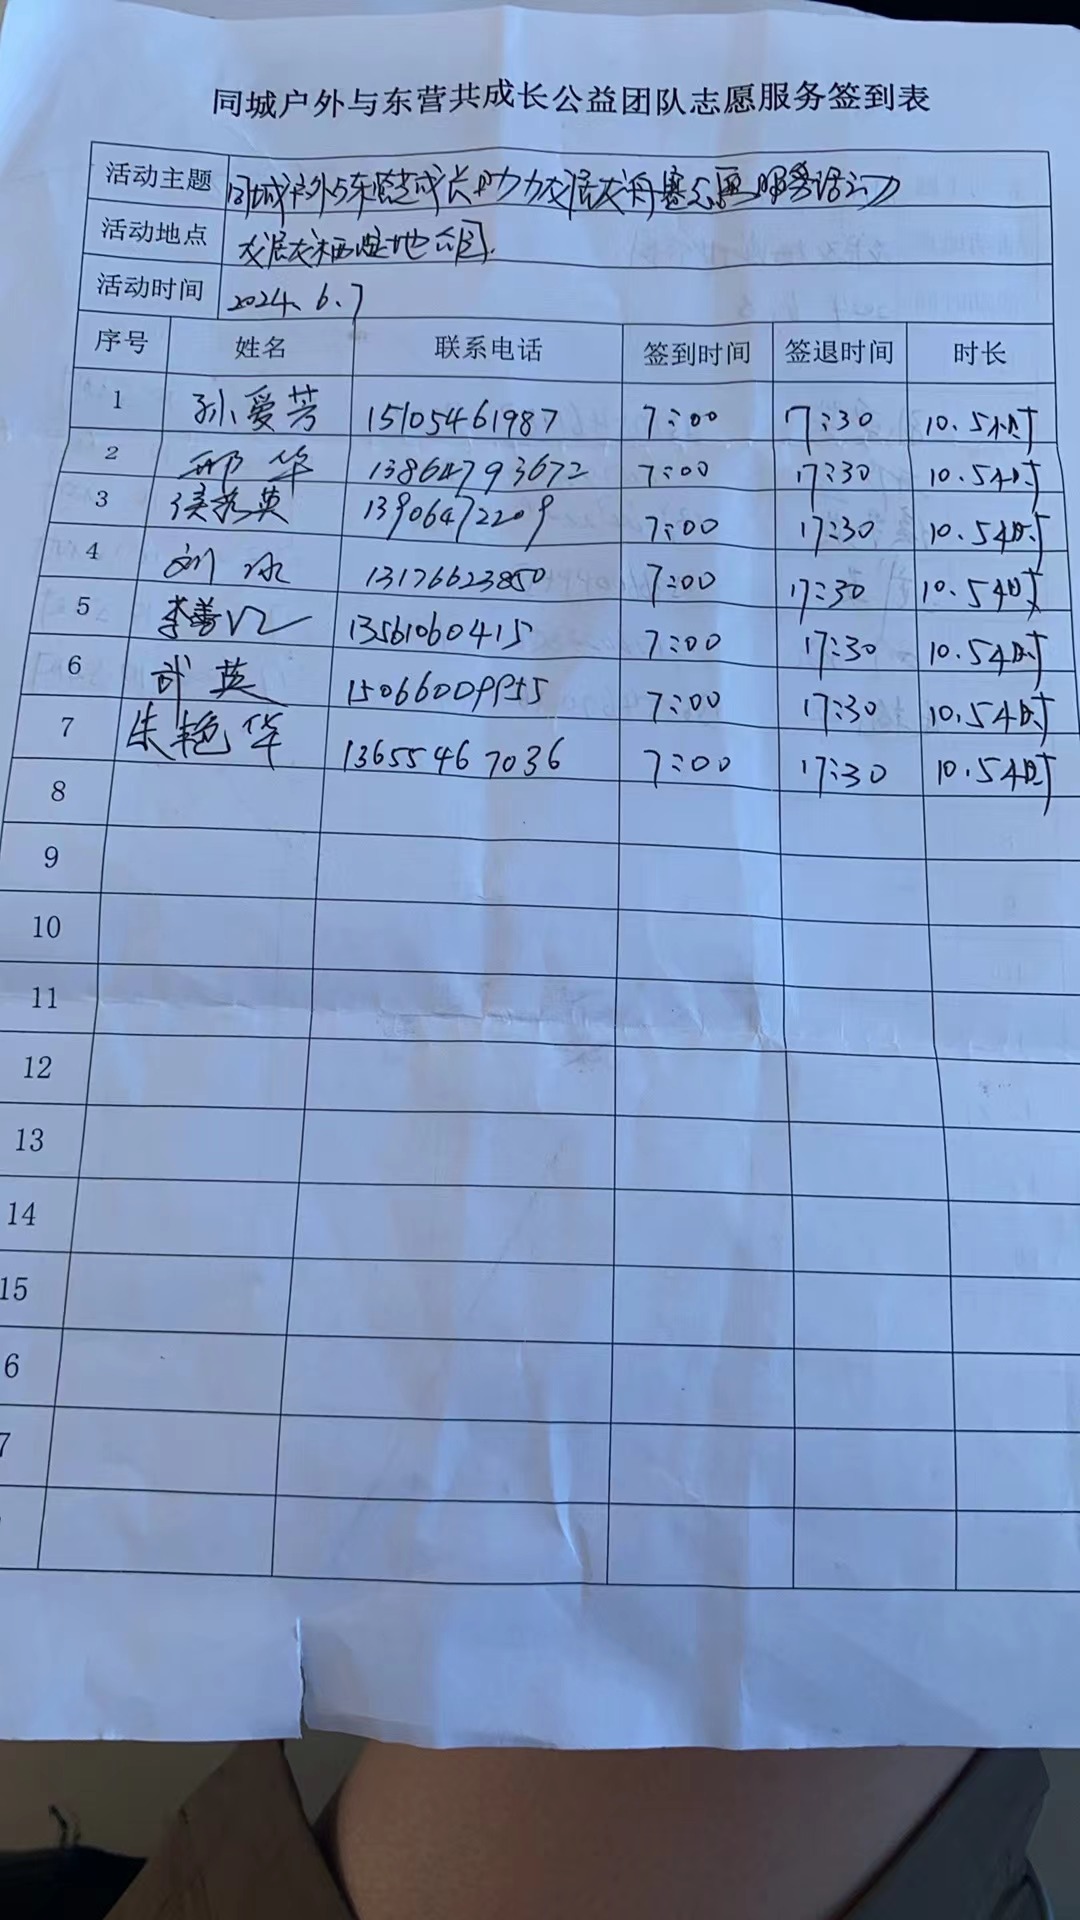 同城户外与东营共成长公益团队志愿服务签到表
活动主题 同城户外与东营共成长助力龙居龙舟赛志愿服务活动
活动地点 龙居龙栖湿地公园.
活动时间 2024.6.7
序号 姓名 联系电话 签到时间 签退时间 时长
1 孙爱芳 15105461987 7:00 17:30 10.5小时
2 邢华 13864793672 7:00 17:30 10.5小时
3 英 13906472209 7:00 17:30 10.5小时
4 刘冰 13176623850 7:00 17:30 10.5小时
5 李善 13561060415 7:00 17:30 10.5小时
6 武英 15066009955 7:00 17:30 10.5小时
7 朱艳华 13655467036 7:00 17:30 10.5小时
8
9
10
11
12
13
14
15
6
7